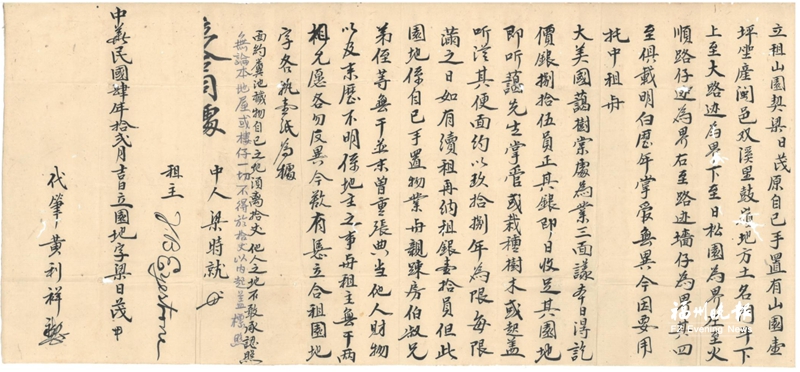 立租山園契梁日茂原自己手置有山園壹
坪坐產閩邑双溪里鼓嶺地方土名 下
上至大路迹為界下至日松園為界左至火
順路仔迹為界右至路迹墻仔為界四
至俱載明白歷年掌爱無異今因要用
托中租与
大美國藹樹棠處為業三面議本日得訖
價銀捌拾伍員正其銀即日收足其園地
即听藹先生掌管或栽種樹木或起盖
听從其便面約以玖拾捌年為限每限
滿之日如有續租再納租銀壹拾員但此
園地係自己手置物業与親踈房伯叔兄
弟侄等無干並未曾重張典当他人財物
以及来歷不明係地主之事与租主無干两
相允愿各勿反異今欲有憑立合租園地
字各執壹紙為據
面約糞池穢物自己之地須离拾丈他人之地不敢承認照
無論本地厝或樓仔一切不得於拾丈以内起盖 照
中人 梁時就
租主 J B Eyestone
中華民國肆年拾弍月吉日立園地字梁日茂
代筆 黄利祥
福州晚报
FZ Evening News